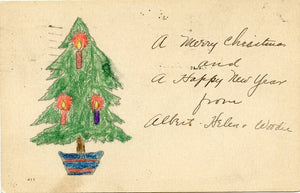 A Merry Christmas
and
A Happy New Year
from
Albert - Helen &